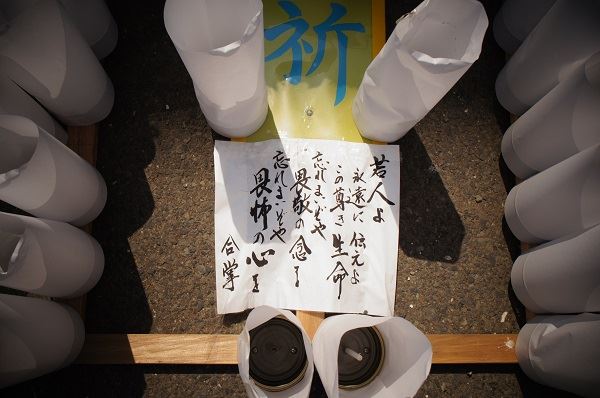 祈
若人よ
永遠に 伝えよ
この尊き 生命
忘れまいぞや
畏敬の念を
忘れまいぞや
畏怖の心を
合掌